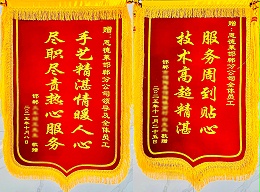 赠：恩德莱邯郸分公司领导及全体员工
手艺精湛情暖人心
尽职尽责热心服务
邯郸
敬赠
二〇二五年十一月六日
赠：恩德莱邯郸分公司全体员工
服务周到贴心
技术高超精湛
邯郸
敬赠
二〇二五年十一月二十五日